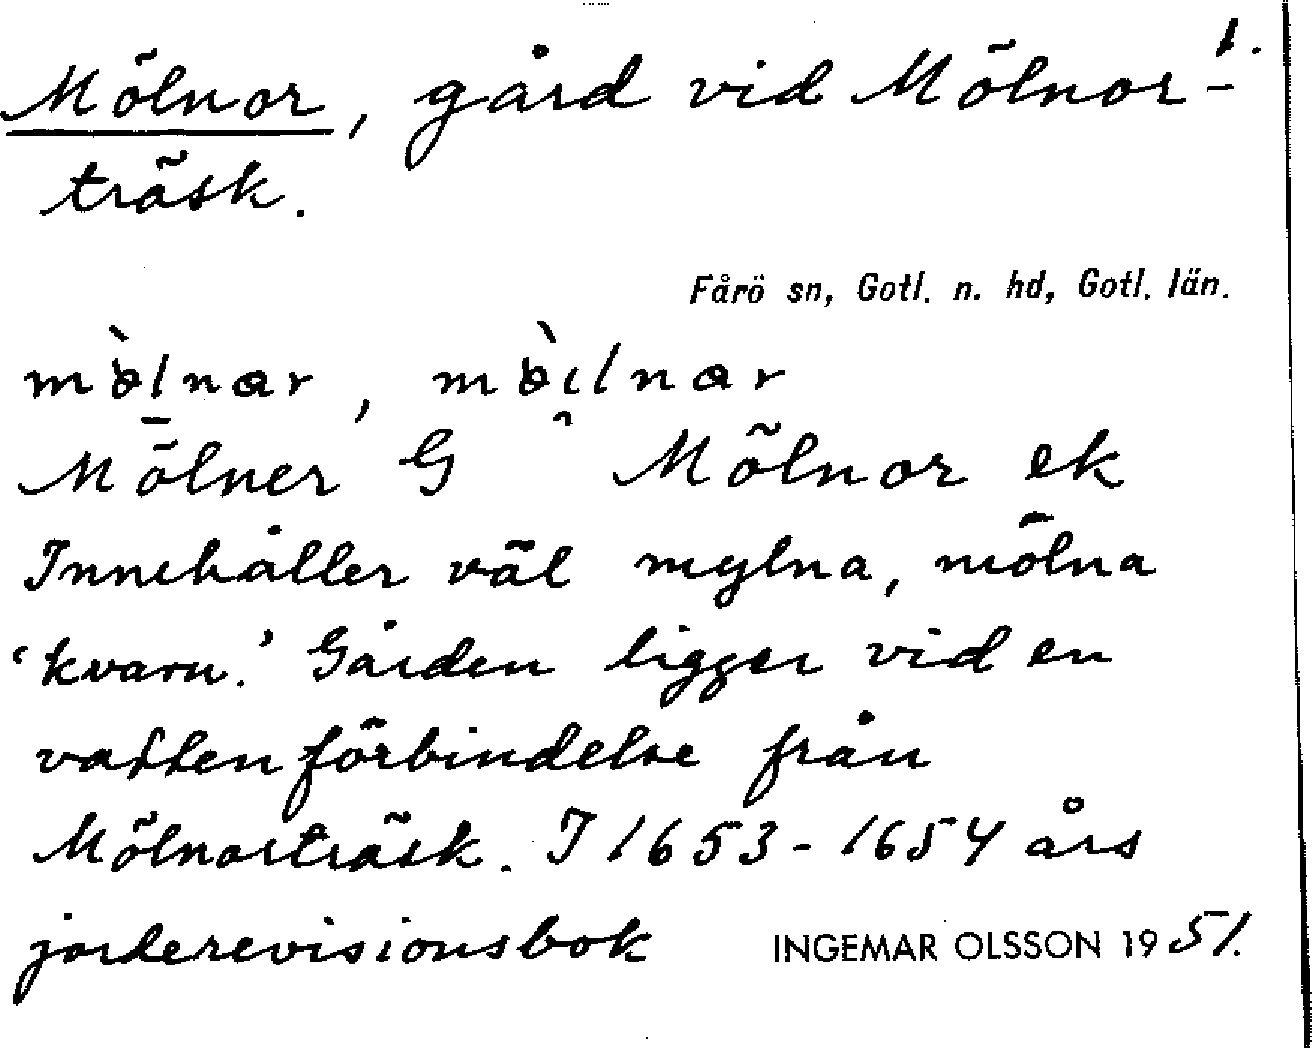 1.
Mölnor, gård vid Mölnor-
träsk.
Fårö sn, Gotl. n. hd, Gotl. län.
Mölner G Mölnor ek
Innehåller väl mylna, mölna
‘kvarn.’ Gården ligger vid en
vattenförbindelse från
Mölnorträsk. I 1653-1654 års
jorderevisionsbok INGEMAR OLSSON 1951.